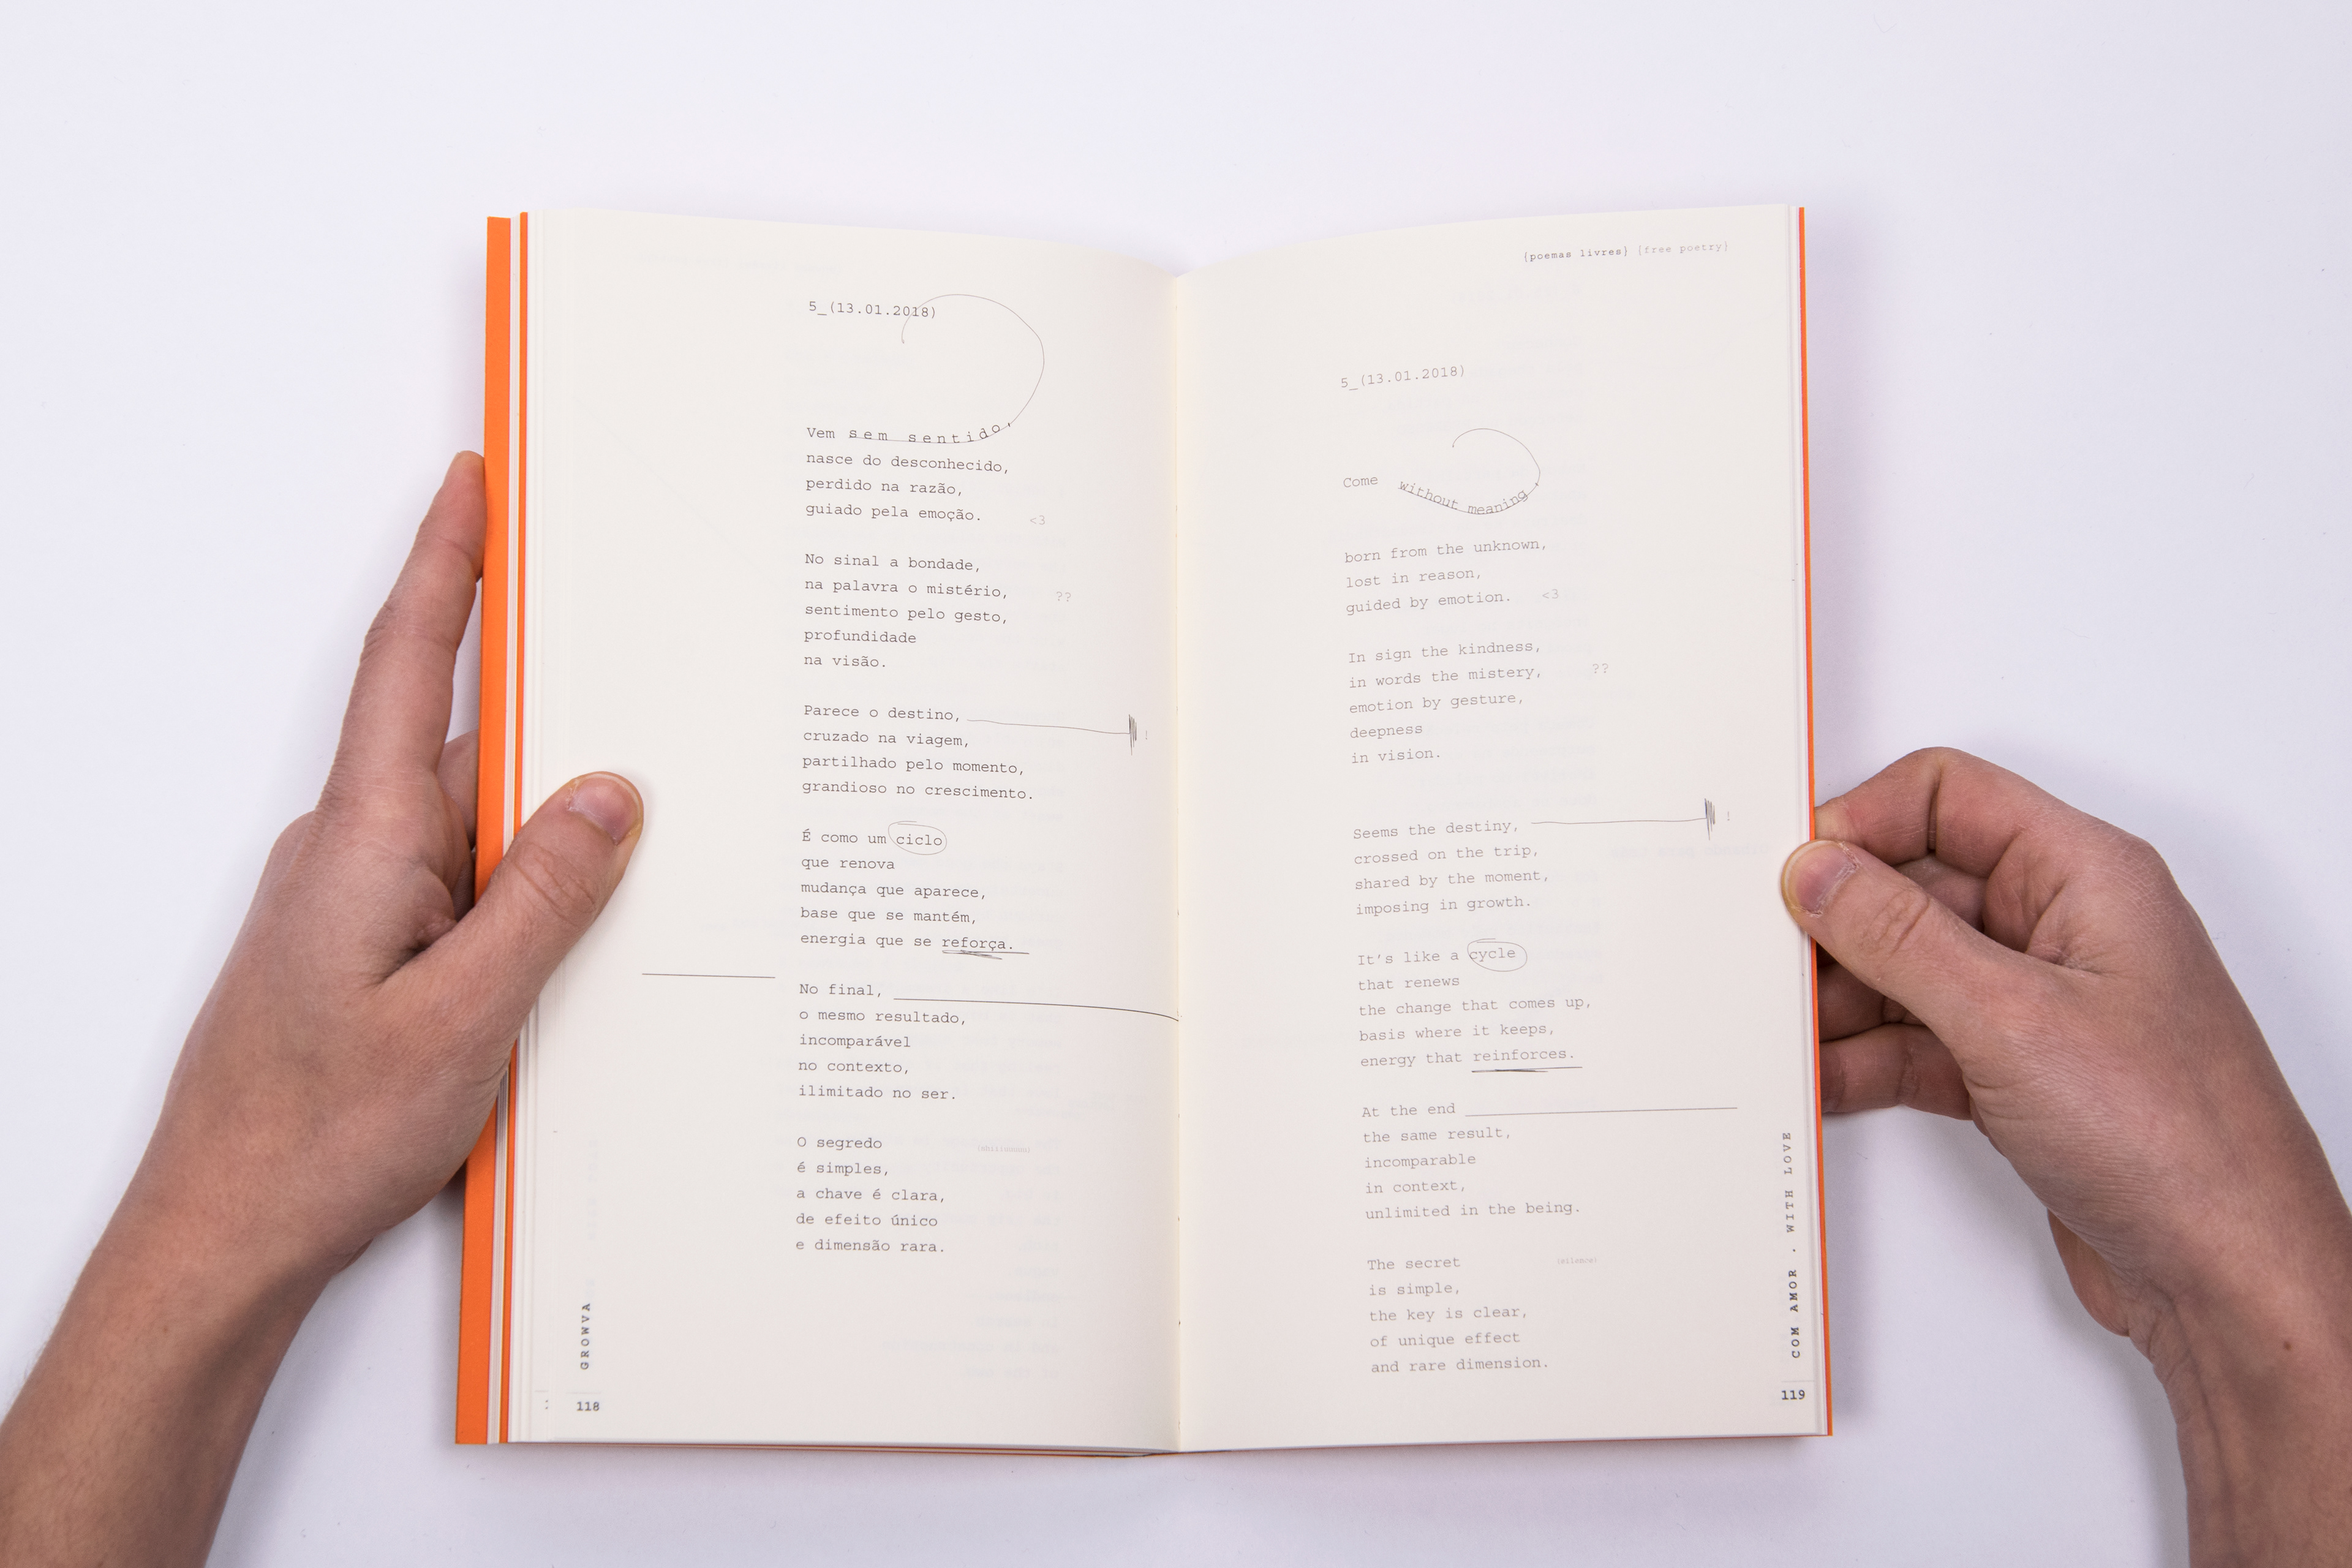 5_(13.01.2018)
Vem sem sentido,
nasce do desconhecido,
perdido na razão,
guiado pela emoção. <3
No sinal a bondade,
na palavra o mistério, ??
sentimento pelo gesto,
profundidade
na visão.
Parece o destino, !
cruzado na viagem,
partilhado pelo momento,
grandioso no crescimento.
É como um ciclo
que renova
mudança que aparece,
base que se mantém,
energia que se reforça.
No final,
o mesmo resultado,
incomparável
no contexto,
ilimitado no ser.
O segredo
é simples,
a chave é clara,
de efeito único
e dimensão rara.
GROWVA
118
{poemas livres} {free poetry}
5_(13.01.2018)
Come without meaning,
born from the unknown,
lost in reason,
guided by emotion. <3
In sign the kindness,
in words the mistery, ??
emotion by gesture,
deepness
in vision.
Seems the destiny, !
crossed on the trip,
shared by the moment,
imposing in growth.
It's like a cycle
that renews
the change that comes up,
basis where it keeps,
energy that reinforces.
At the end
the same result,
incomparable
in context,
unlimited in the being.
The secret (silence)
is simple,
the key is clear,
of unique effect
and rare dimension.
COM AMOR . WITH LOVE
119